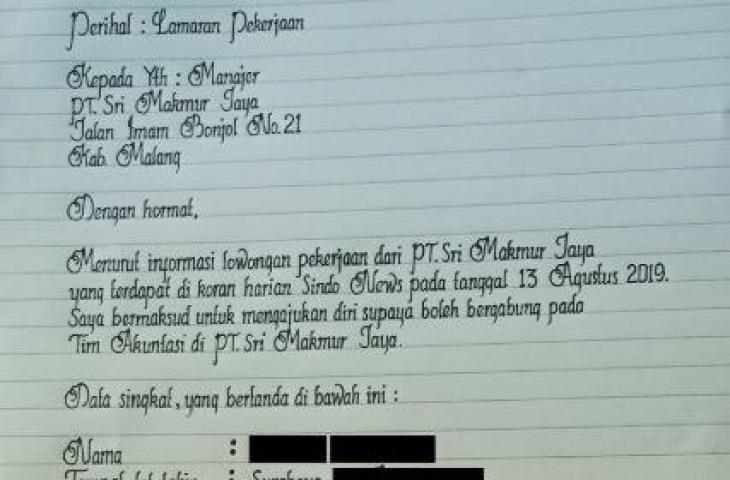 Perihal : Lamaran Pekerjaan
Kepada Yth : Manajer
PT. Sri Makmur Jaya
Jalan Imam Bonjol No. 21
Kab. Malang
Dengan hormat,
Menurut informasi lowongan pekerjaan dari PT. Sri Makmur Jaya
yang terdapat di koran harian Sindo News pada tanggal 13 Agustus 2019.
Saya bermaksud untuk mengajukan diri supaya boleh bergabung pada
Tim Akuntasi di PT. Sri Makmur Jaya.
Data singkat, yang bertanda di bawah ini :
Nama :
: Surabaya